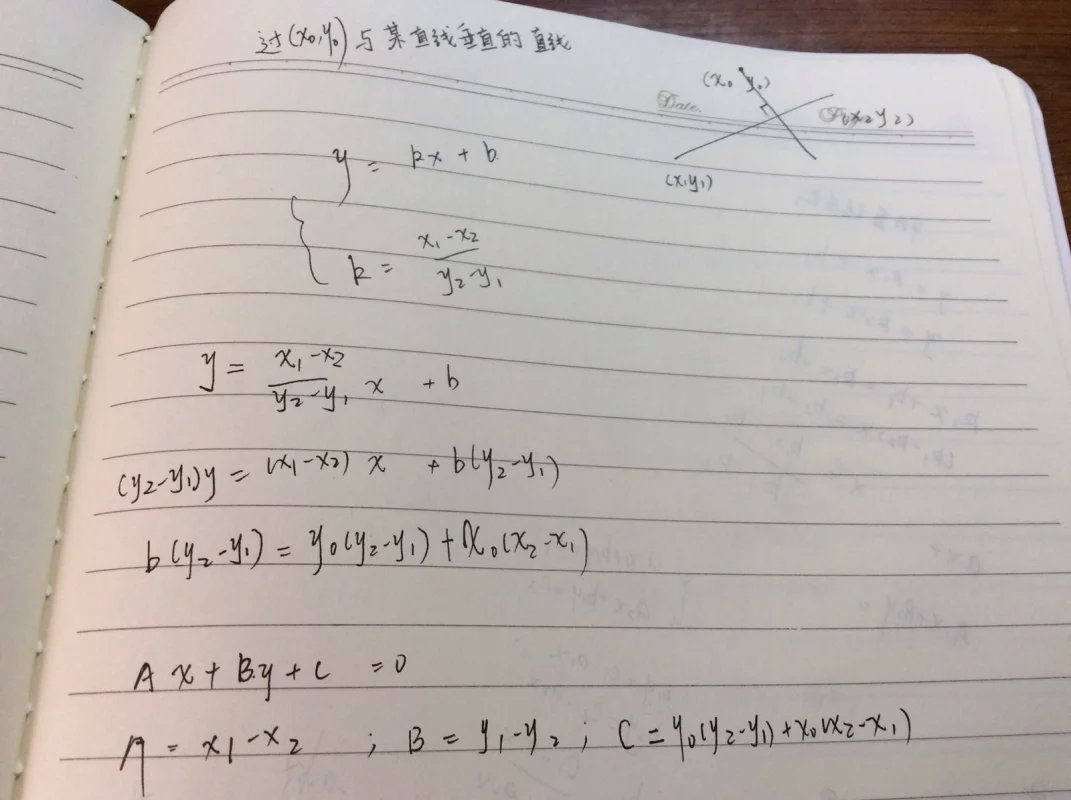 过(x₀,y₀)与某直线垂直的直线
(x₀ y₀)
Date.
(x₂y₂)
(x₁y₁)
y = kx + b
k = \frac{x₁-x₂}{y₂-y₁}
y = \frac{x₁-x₂}{y₂-y₁} x + b
(y₂-y₁)y = (x₁-x₂) x + b(y₂-y₁)
b(y₂-y₁) = y₀(y₂-y₁)+x₀(x₂-x₁)
A x + By + C = 0
A = x₁-x₂ ; B = y₁-y₂ ; C = y₀(y₂-y₁)+x₀(x₂-x₁)